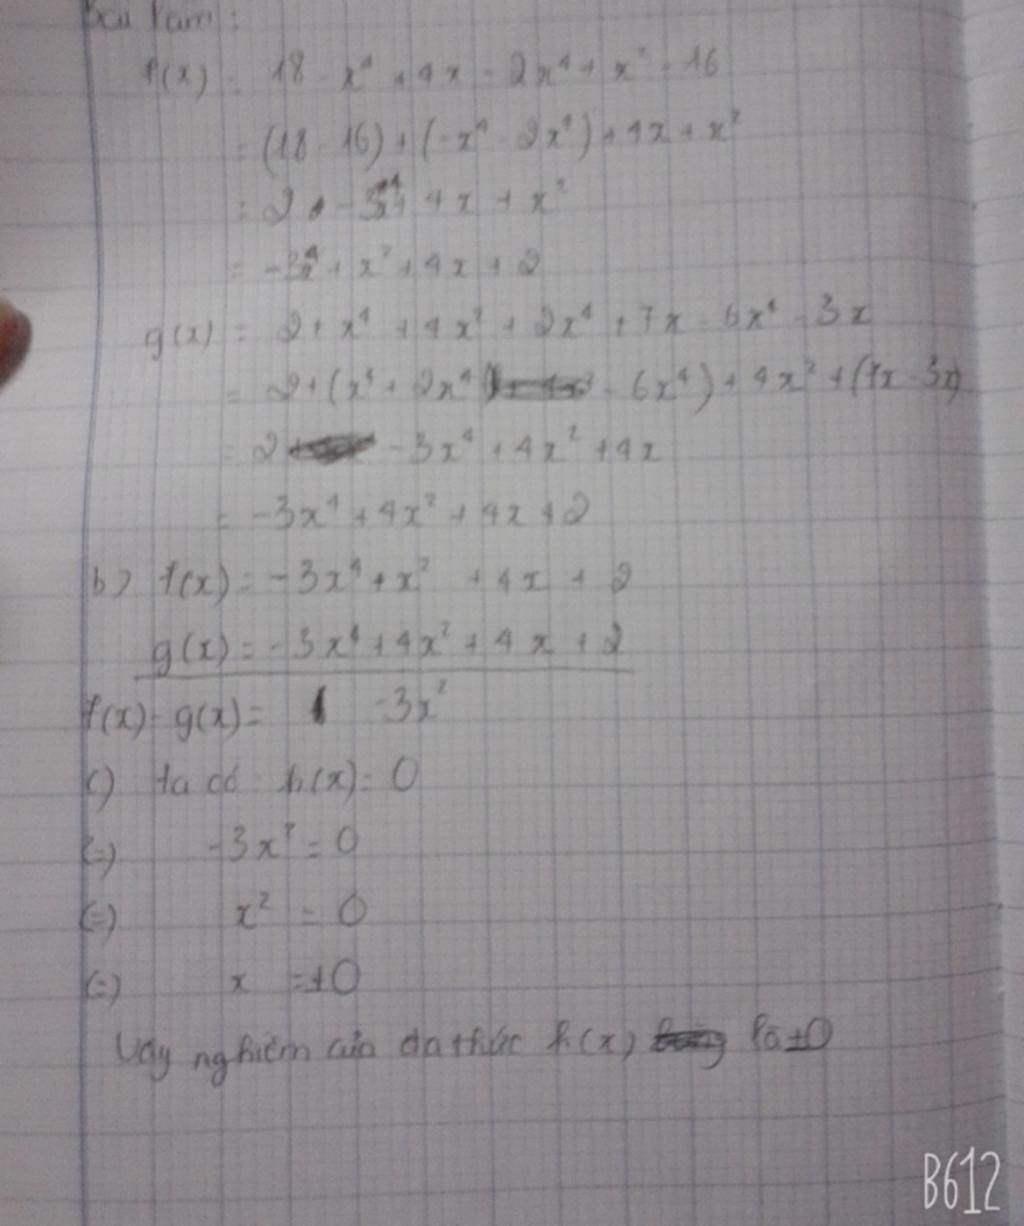 Bài làm:
f(x) = 18 - x⁴ + 4x - 2x⁴ + x² - 16
= (18 - 16) + (-x⁴ - 2x⁴) + 4x + x²
= 2 + -3x⁴ + 4x + x²
= -3x⁴ + x² + 4x + 2
g(x) = 2 + x⁴ + 4x² + 2x⁴ + 7x - 6x⁴ - 3x
= 2 + (x⁴ + 2x⁴ - 6x⁴) + 4x² + (7x - 3x)
= 2 - 3x⁴ + 4x² + 4x
= -3x⁴ + 4x² + 4x + 2
b) f(x) = -3x⁴ + x² + 4x + 2
g(x) = -3x⁴ + 4x² + 4x + 2
f(x) - g(x) = -3x²
c) ta có h(x) = 0
(=) -3x² = 0
(=) x² = 0
(=) x = ±0
Vậy nghiệm của đa thức h(x) là ±0
B612